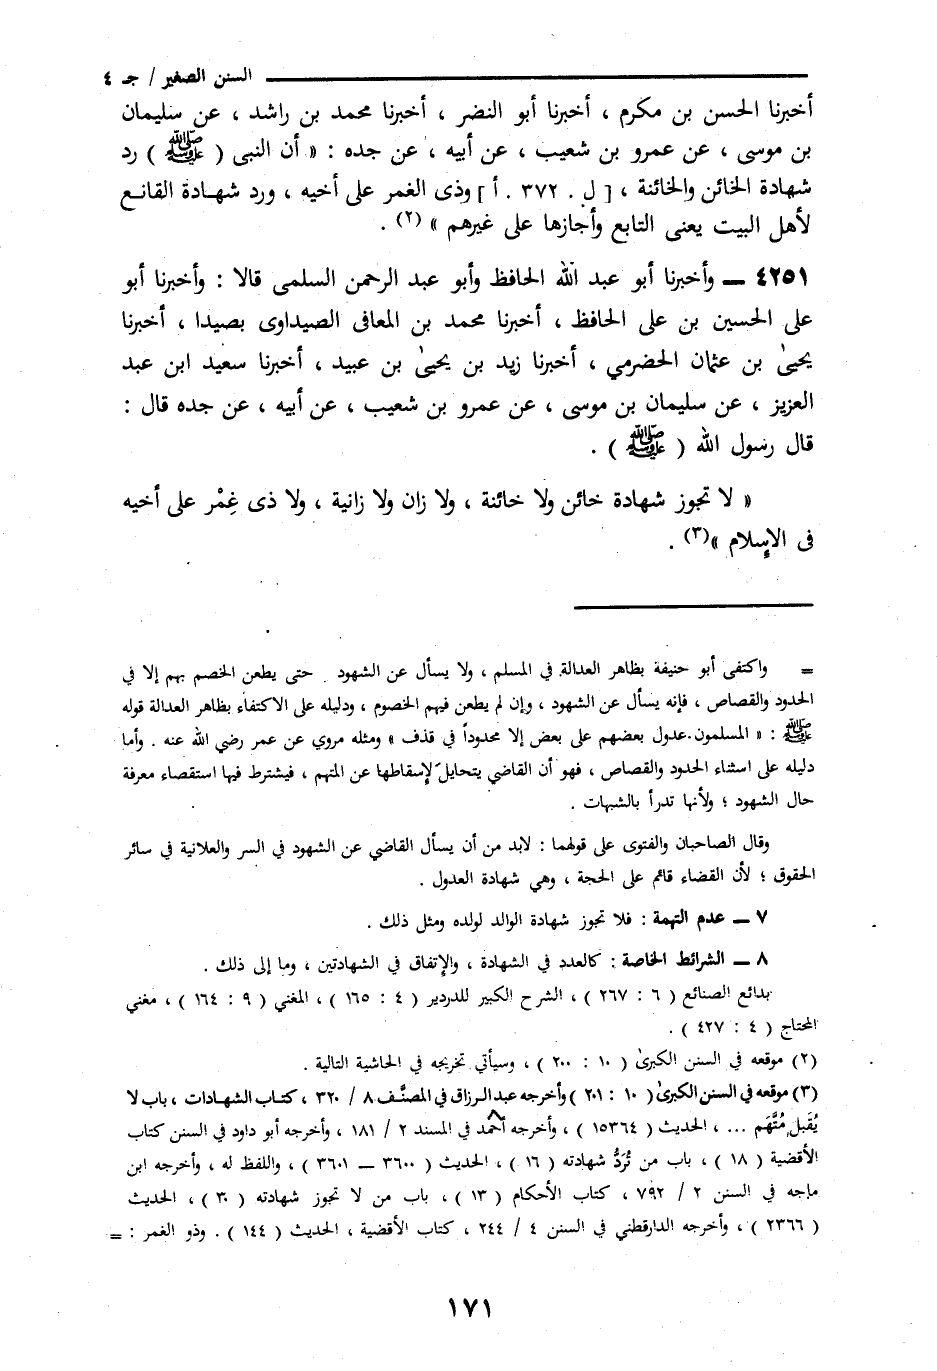 السنن الصغير / جـ ٤
أخبرنا الحسن بن مكرم ، أخبرنا أبو النضر ، أخبرنا محمد بن راشد ، عن سليمان
بن موسى ، عن عمرو بن شعيب ، عن أبيه ، عن جده : « أن النبى ( ﷺ ) رد
شهادة الخائن والخائنة ، [ ل . ٣٧٢ . أ ] وذى الغمر على أخيه ، ورد شهـادة القانـع
لأهل البيت يعنى التابع وأجازها على غيرهم » (٢) .
٤٢٥١ ــ وأخبرنا أبو عبد الله الحافظ وأبو عبد الرحمن السلمى قالا : وأخبرنا أبو
على الحسين بن على الحافظ ، أخبرنا محمد بن المعافى الصيداوى بصيدا ، أخبرنا
يحيىٰ بن عثمان الحضرمي ، أخبرنا زيد بن يحيىٰ بن عبيد ، أخبرنا سعيد ابن عبد
العزيز ، عن سليمان بن موسى ، عن عمرو بن شعيب ، عن أبيه ، عن جده قال :
قال رسول الله ( ﷺ ) .
« لا تجوز شهادة خائن ولا خائنة ، ولا زان ولا زانية ، ولا ذى غِمْر على أخيه
فى الإسلام »(٣) .
= واكتفى أبو حنيفة بظاهر العدالة في المسلم ، ولا يسأل عن الشهود . حتى يطعن الخصم بهم إلا في
الحدود والقصاص ، فإنه يسأل عن الشهود ، وإن لم يطعن فيهم الخصوم ، ودليله على الاكتفاء بظاهر العدالة قوله
ﷺ : « المسلمون عدول بعضهم على بعض إلا محدوداً في قذف » ومثله مروي عن عمر رضي الله عنه . وأما
دليله على استثناء الحدود والقصاص ، فهو أن القاضي يتحايل لإسقاطها عن المتهم ، فيشترط فيها استقصاء معرفة
حال الشهود ؛ ولأنها تدرأ بالشبهات .
وقال الصاحبان والفتوى على قولهما : لابد من أن يسأل القاضي عن الشهود في السر والعلانية في سائر
الحقوق ؛ لأن القضاء قائم على الحجة ، وهي شهادة العدول .
٧ ــ عدم التهمة : فلا تجوز شهادة الوالد لولده ومثل ذلك .
٨ ــ الشرائط الخاصة : كالعدد في الشهادة ، والإتفاق في الشهادتين ، وما إلى ذلك .
بدائع الصنائع ( ٦ : ٢٦٧ ) ، الشرح الكبير للدردير ( ٤ : ١٦٥ ) ، المغني ( ٩ : ١٦٤ ) ، مغني
المحتاج ( ٤ : ٤٢٧ ) .
(٢) موقعه في السنن الكبرىٰ ( ١٠ : ٢٠٠ ) ، وسيأتي تخريجه في الحاشية التالية .
(٣) موقعه في السنن الكبرىٰ ( ١٠ : ٢٠١ ) وأخرجه عبد الـرزاق في المصنَّـف ٨ / ٣٢٠ ، كتـاب الشهـادات ، باب لا
يُقبل مُتَّهَم ... ، الحديث ( ١٥٣٦٤ ) ، وأخرجه أحمد في المسند ٢ / ١٨١ ، وأخرجه أبو داود في السنن كتاب
الأقضية ( ١٨ ) ، باب من تُرَدُّ شهادته ( ١٦ ) ، الحديث ( ٣٦٠٠ ــ ٣٦٠١ ) ، واللفظ له ، وأخرجه ابن
ماجه في السنن ٢ / ٧٩٢ ، كتاب الأحكام ( ١٣ ) ، باب من لا تجوز شهادته ( ٣٠ ) ، الحديث
( ٢٣٦٦ ) ، وأخرجه الدارقطني في السنن ٤ / ٢٤٤ ، كتاب الأقضية ، الحديث ( ١٤٤ ) . وذو الغمر : =
١٧١